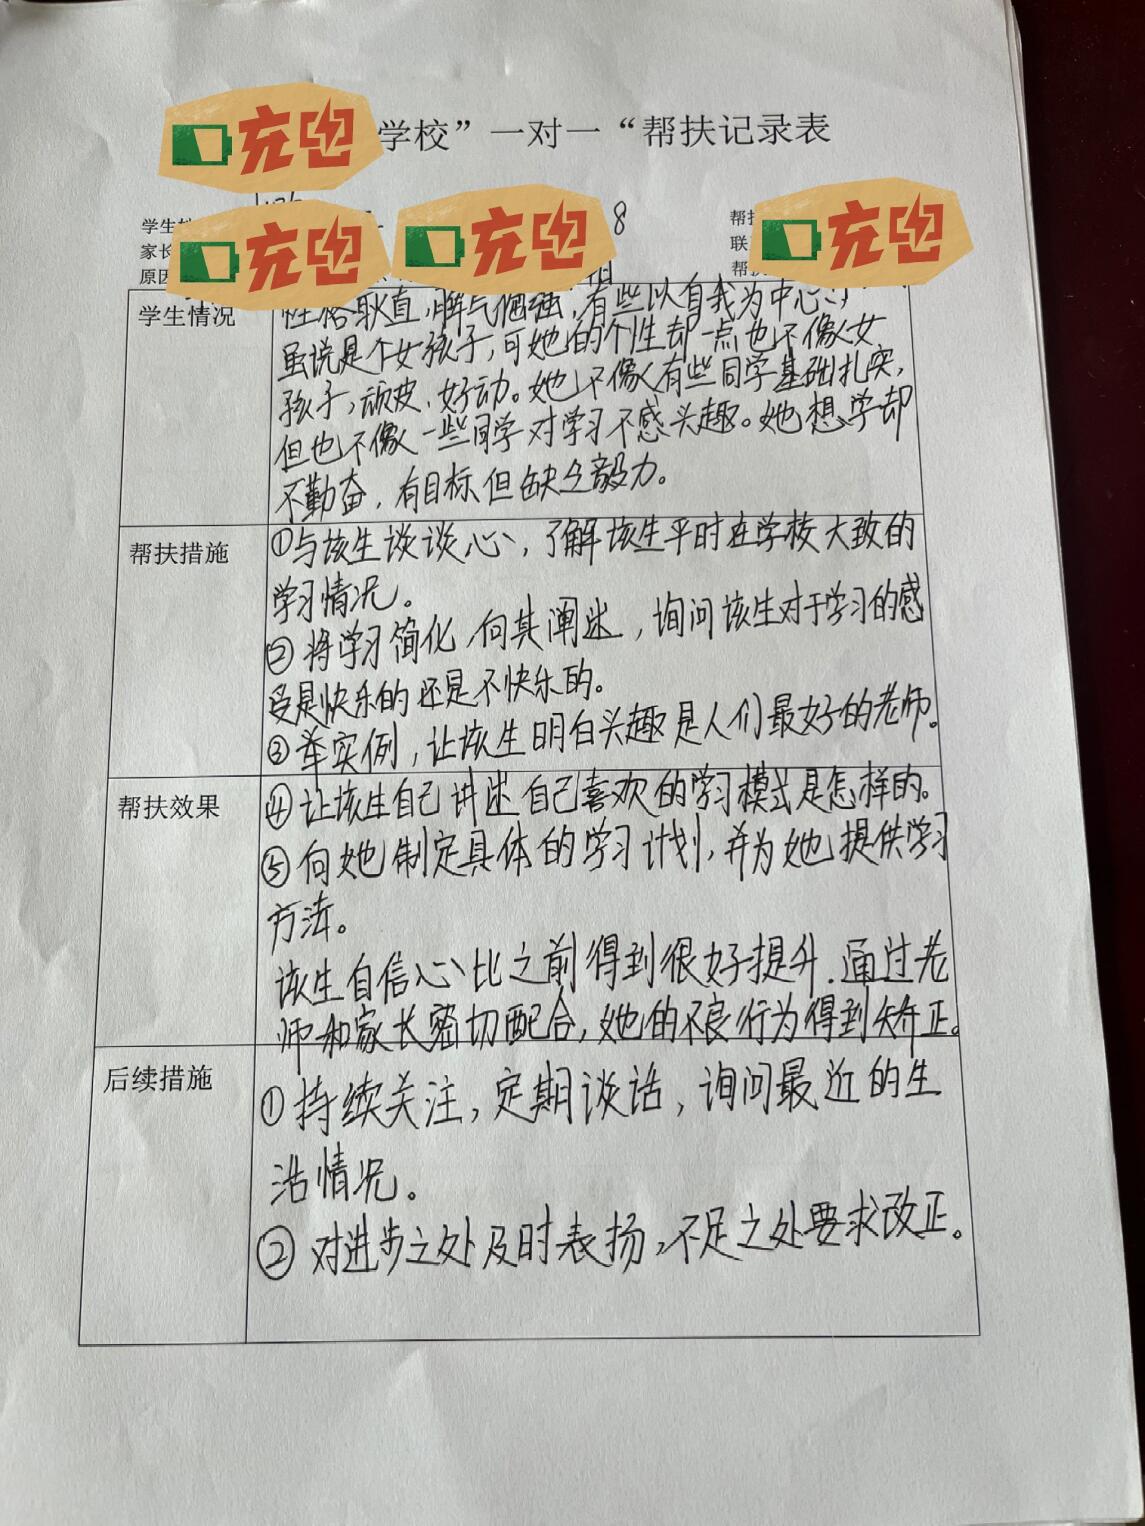 充电 学校”一对一“帮扶记录表
学生 8 帮
家长 充电 充电 充电 联
原因 帮
学生情况 性格耿直,脾气倔强,有些以自我为中心,
虽说是个女孩子,可她的个性却一点也不像女
孩子,顽皮、好动。她不像有些同学基础扎实,
但也不像一些同学对学习不感兴趣。她想学却
不勤奋,有目标但缺乏毅力。
帮扶措施 ①与该生谈谈心,了解该生平时在学校大致的
学习情况。
②将学习简化,向其阐述,询问该生对于学习的感
受是快乐的还是不快乐的。
③举实例,让该生明白兴趣是人们最好的老师。
帮扶效果 ④让该生自己讲述自己喜欢的学习模式是怎样的。
⑤向她制定具体的学习计划,并为她提供学习
方法。
该生自信心比之前得到很好提升.通过老
师和家长密切配合,她的不良行为得到矫正。
后续措施 ①持续关注,定期谈话,询问最近的生
活情况。
②对进步之处及时表扬,不足之处要求改正。